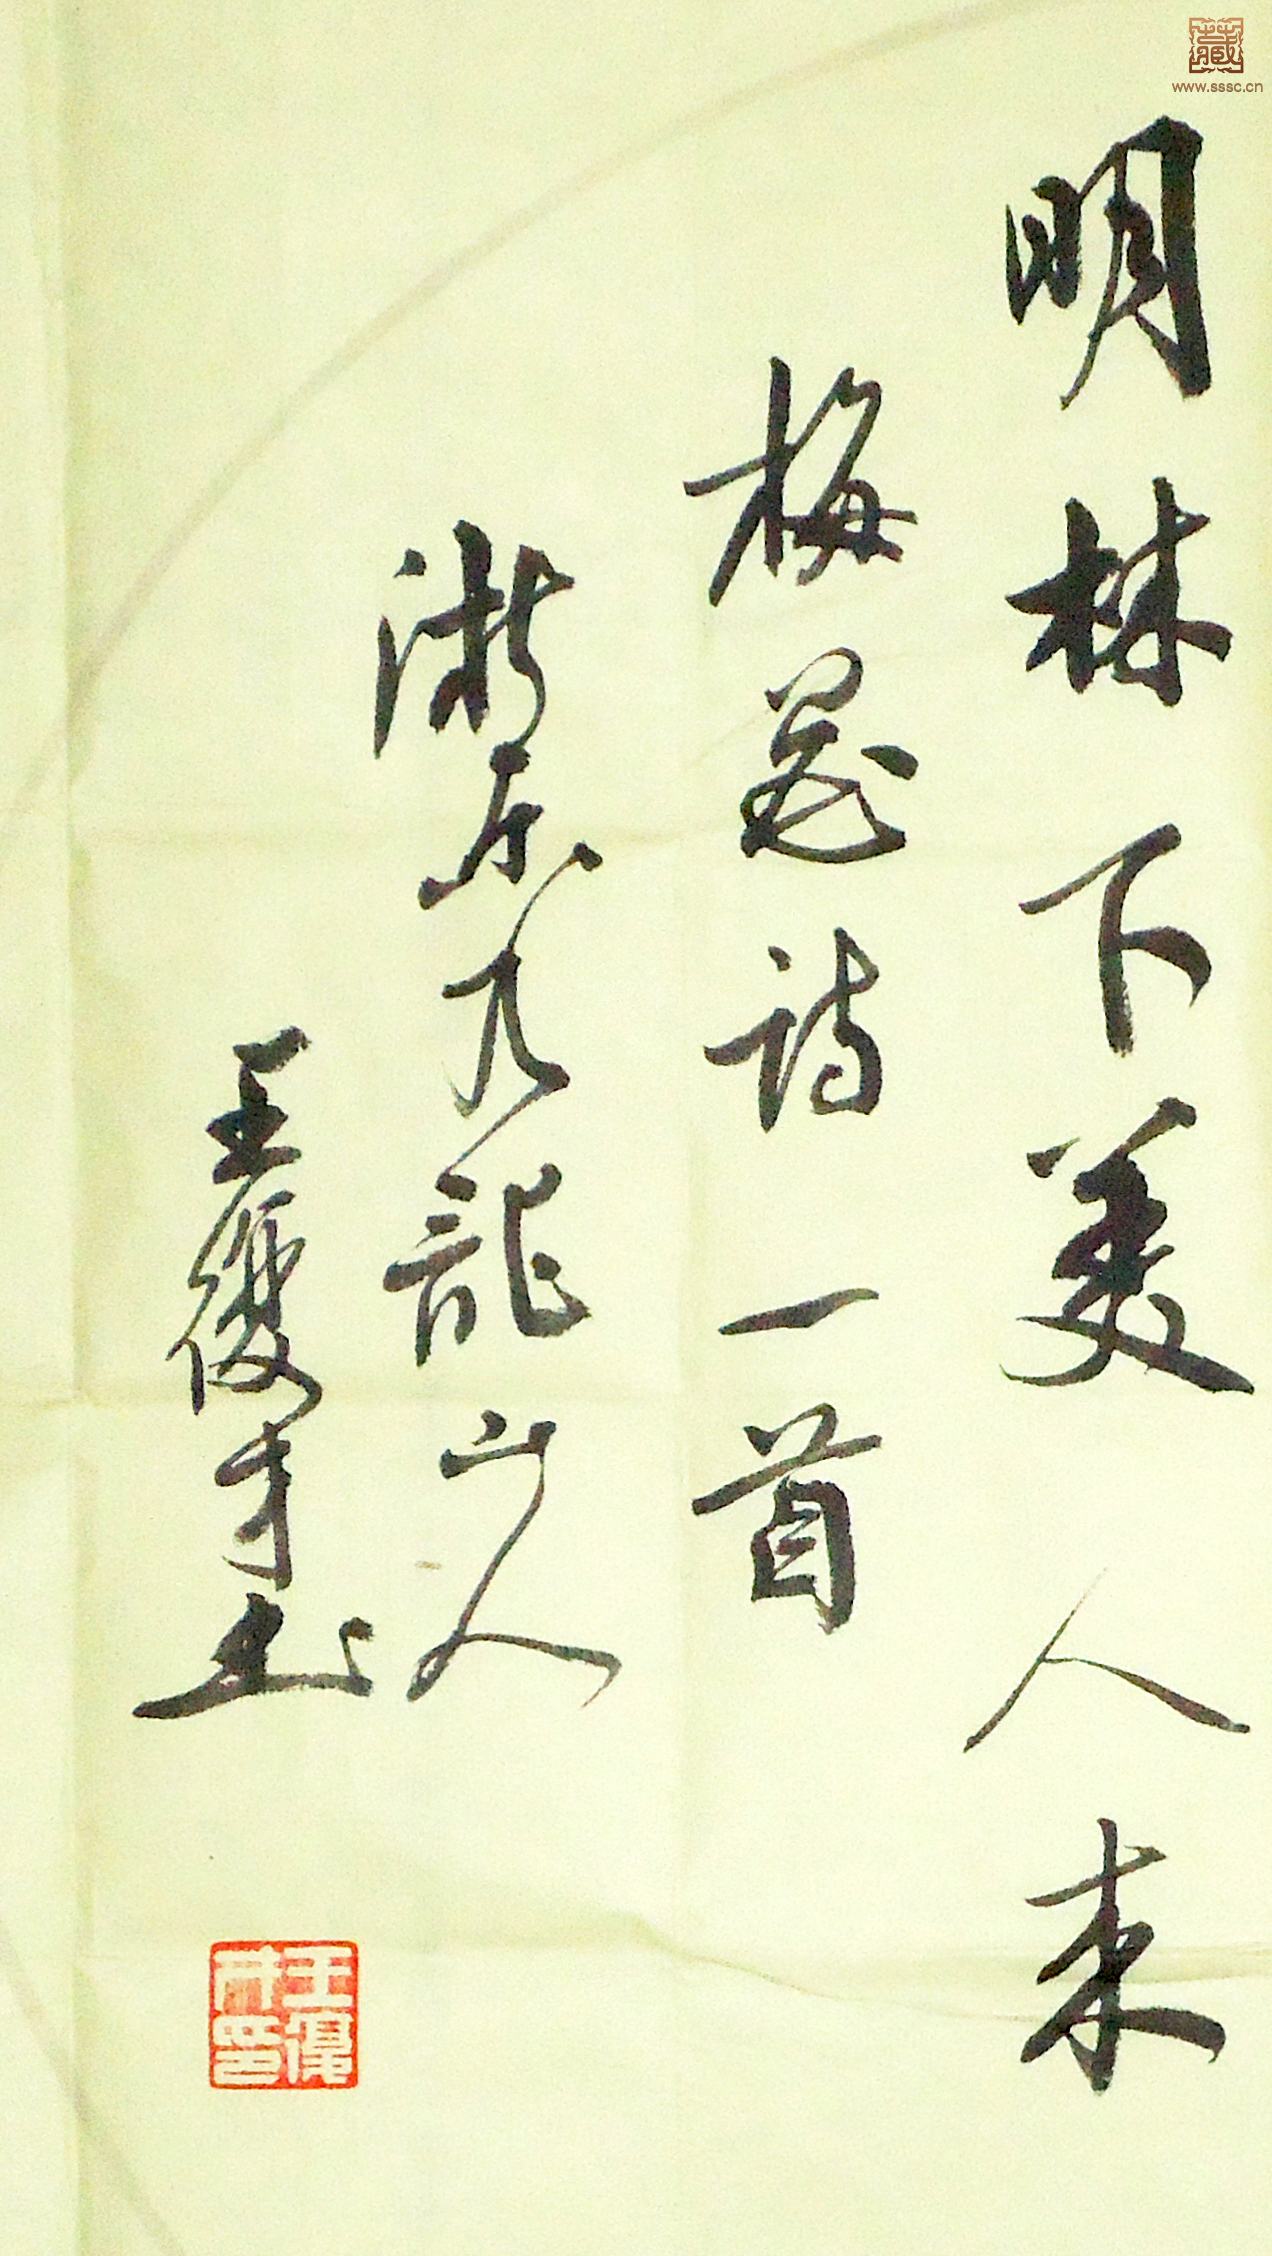 藏
www.sssc.cn
明林下美人来
梅花诗一首
浙东九龍山人
王優才书
王優才印